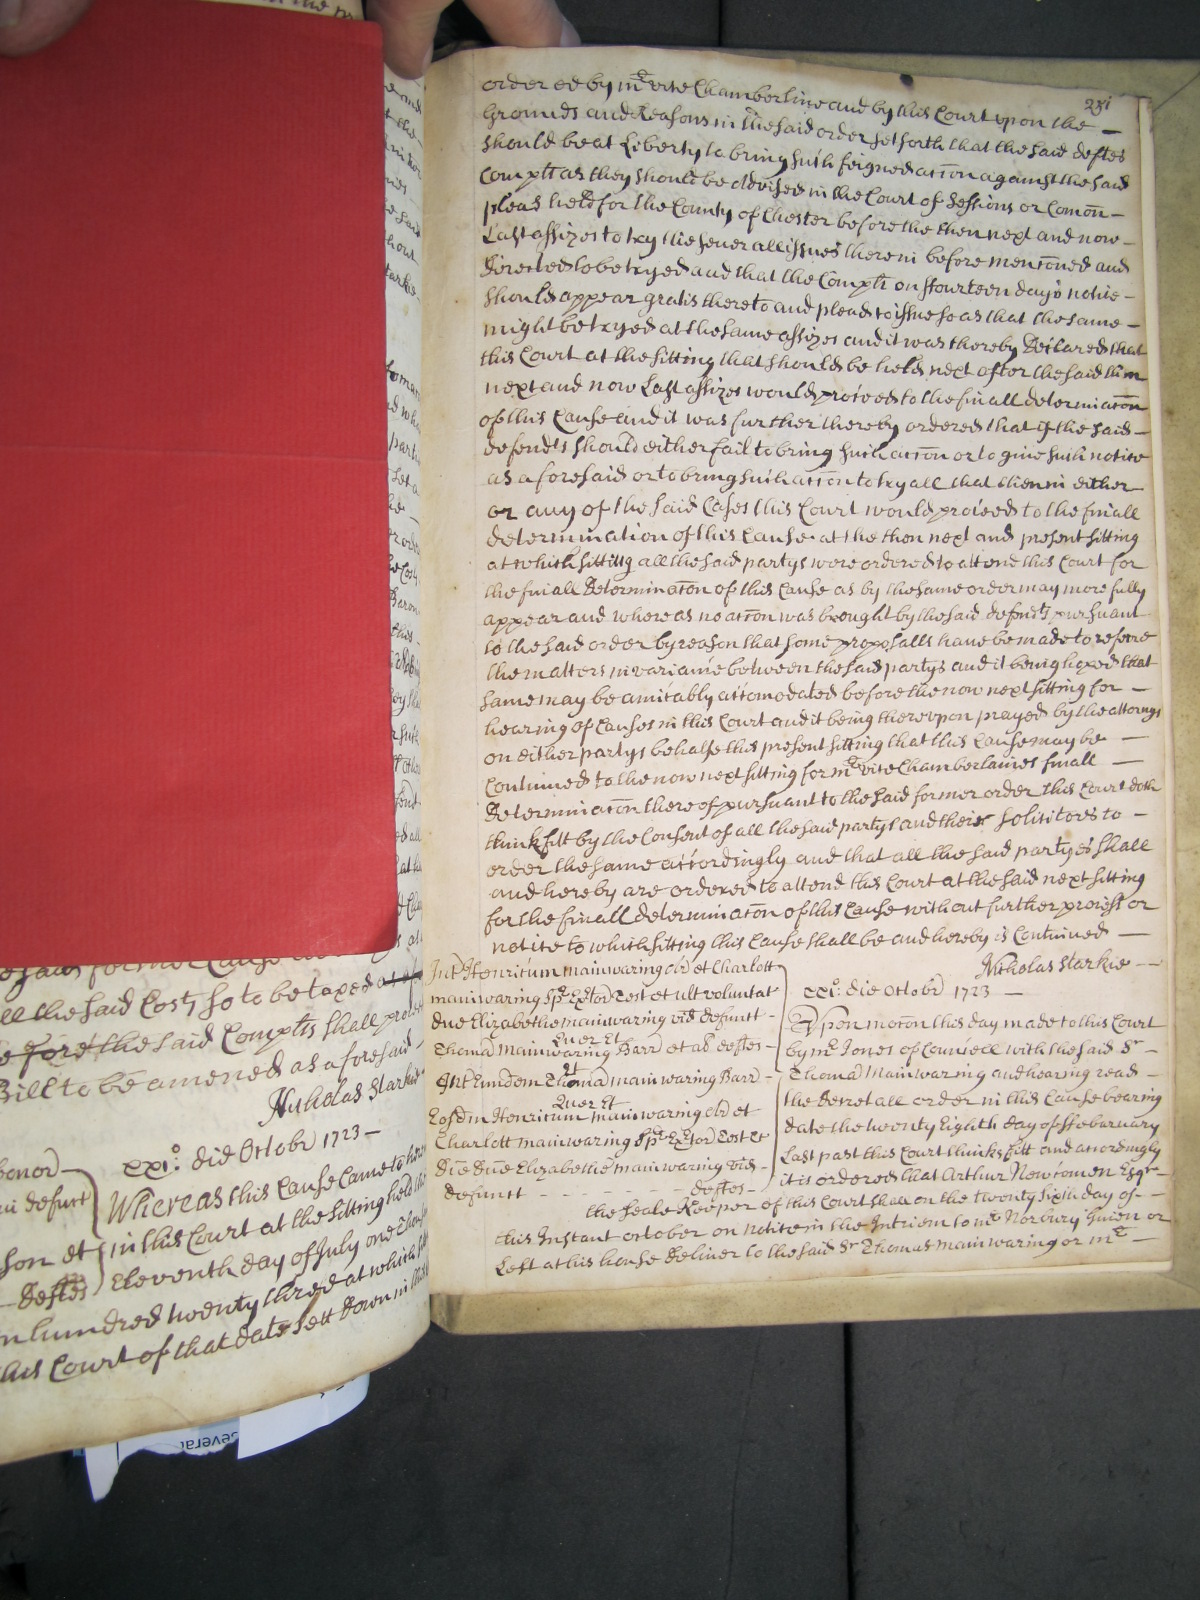 231
ordered by mr vice Chamberline and by this Court upon the —
Grounds and Reasons in the said order set forth that the said defts
should be at Liberty to bring such feigned accon against the said
Complt as they should be advised in the Court of Sessions or Comon —
pleas held for the County of Chester before the then next and now —
Last assizes to try the severall issues therein before menconed and
directed to be tryed and that the Complt on ffourteen days notice —
should appear gratis thereto and plead to issue so as that the same —
might be tryed at the same assizes and it was thereby Declared that
this Court at the sitting that should be held next after the said then
next and now Last assizes would proceed to the finall determinacon
of this Cause and it was further thereby ordered that if the said —
defendts should either fail to bring such accon or to give such notice
as aforesaid or to bring such accon to try all that then in either
or any of the said Cases this Court would proceed to the finall
determination of this Cause at the then next and present sitting
at which sitting all the said partys were ordered to attend this Court for
the finall Determinacon of this Cause as by the same order may more fully
appear and whereas no accon was brought by the said defendts pursuant
to the said order by reason that some proposalls have be made to referre
the matters in variance between the said partys and it being hoped that
same may be amicably accomodated before the now next sitting for —
hearing of Causes in this Court and it being thereupon prayed by the attorneys
on either partys behalfe this present sitting that this Cause may be —
Continued to the now next sitting for mr vice Chamberlaines finall —
Determinacon thereof pursuant to the said former order this Court doth
think fitt by the Consent of all the said partys and their Solicitors to —
order the same accordingly and that all the said partyes shall
and hereby are ordered to attend this Court at the said next sitting
for the finall determinacon of this Cause without further process or
notice to which sitting this Cause shall be and hereby is Continued —
Nicholas Starkie —
Int Henricum mainwaring et Charlott
mainwaring Spr Extor Test et ult voluntat
due Elizabethe mainwaring vid defunct -
Quer Et
Thoma mainwaring Barr et al deftes -
Int Eundem Thoma mainwaring Barr -
Quer Et
Eosdm Henricum mainwaring et
Charlott mainwaring Spr Extor Test Et
due Elizabethe mainwaring vid -
defunct - - - - deftes -
xxi.o die Octobr 1723 —
Upon mocon this day made to this Court
by mr Jones of Councell with the said Sr —
Thoma mainwaring and hearing read —
the decretall order in this Cause bearing
date the twenty Eighth day of ffebruary
Last past this Court thinks fitt and accordingly
it is ordered that Arthur Newcomen Esqr —
the seale Keeper of this Court shall on the twenty sixth day of —
this Instant october on notice in the Interim to mr Norbury given or
Left at his house deliver to the said Sr Thomas mainwaring or mr —
all the said Costs so to be taxed
before the said Complts shall
Bill to be amened as aforesaid
Nicholas Starkie
xxi.o die Octobr 1723 —
Whereas this Cause came to
in this Court at the sitting held
Eleventh day of July one
defts
hundred twenty three at which
this Court of that date sett down in